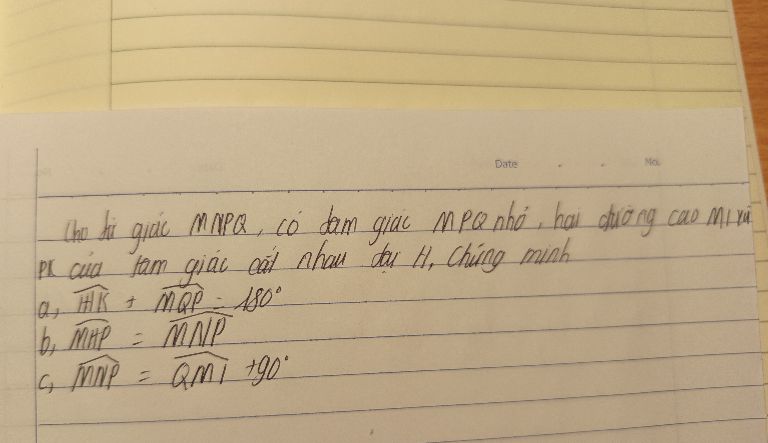 Date . . No.
Cho tứ giác MNPQ, có tam giác MPQ nhỏ, hai đường cao MI và
PK của tam giác cắt nhau tại H, Chứng minh
a, HIK + MQP = 180°
b, MHP = MNP
c, MNP = QMI + 90°